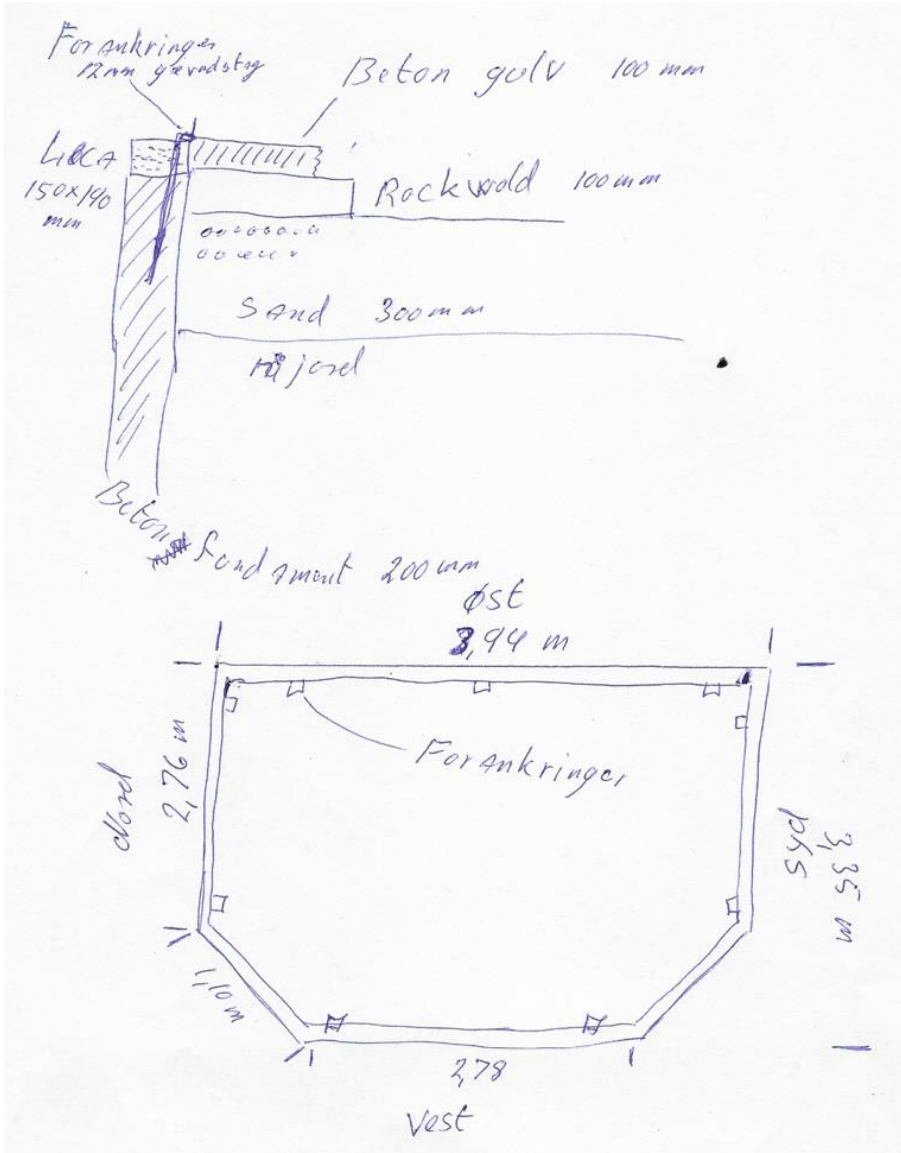 Forankringer
12mm gevindstag
Beton gulv 100 mm
LECA
150x190
mm
Rockwold 100mm
Sand 300mm
Råjord
Beton
fondament 200mm
Øst
3,94 m
Forankringer
Nord
2,76 m
Syd
3,35 m
1,10 m
2,78
Vest